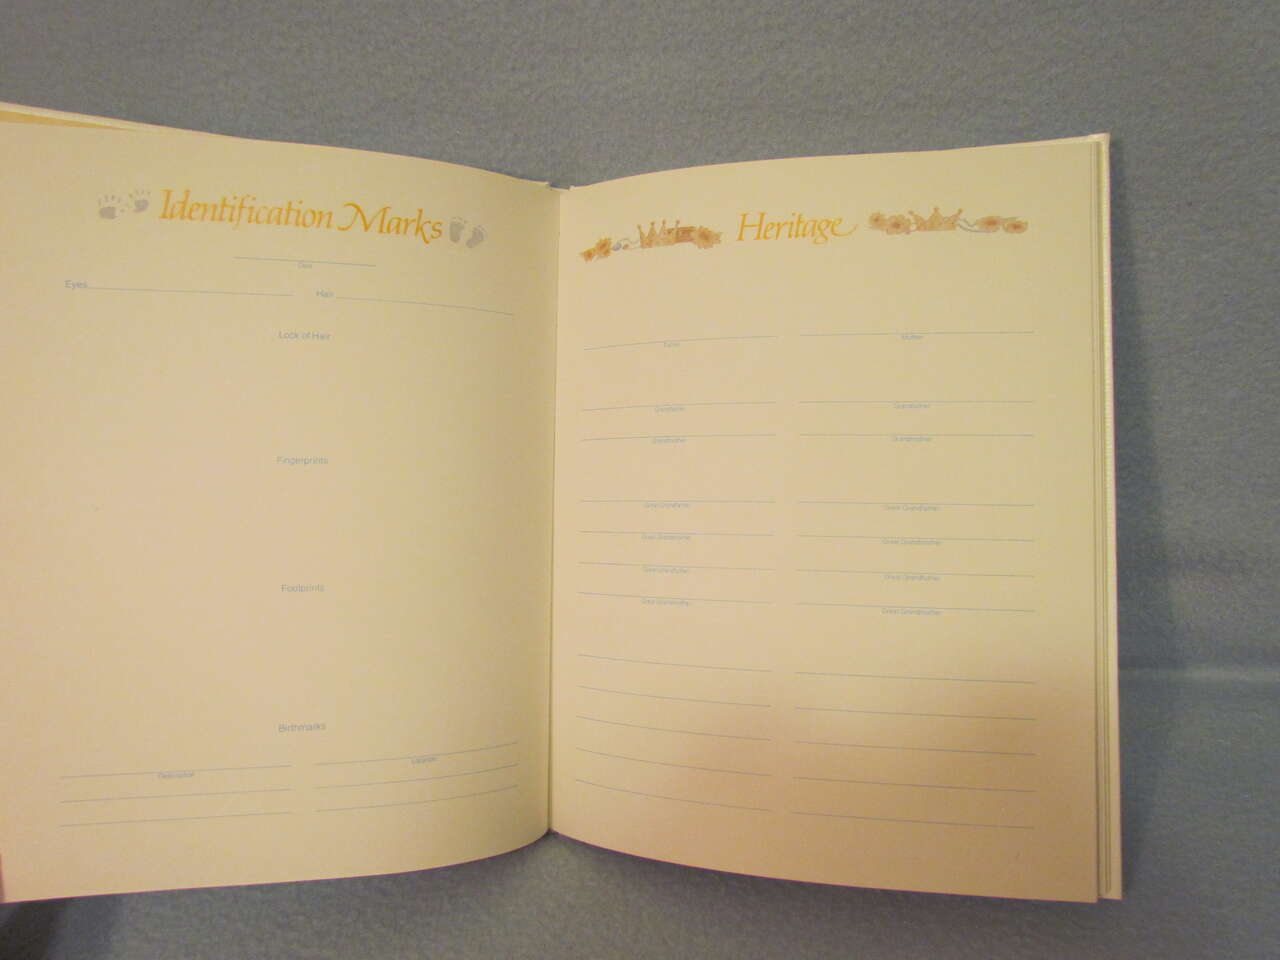 Identification Marks
Date
Eyes
Hair
Lock of Hair
Fingerprints
Footprints
Birthmarks
Description
Location
Heritage
Father
Mother
Grandfather
Grandfather
Grandmother
Grandmother
Great Grandfather
Great Grandfather
Great Grandmother
Great Grandmother
Great Grandfather
Great Grandfather
Great Grandmother
Great Grandmother